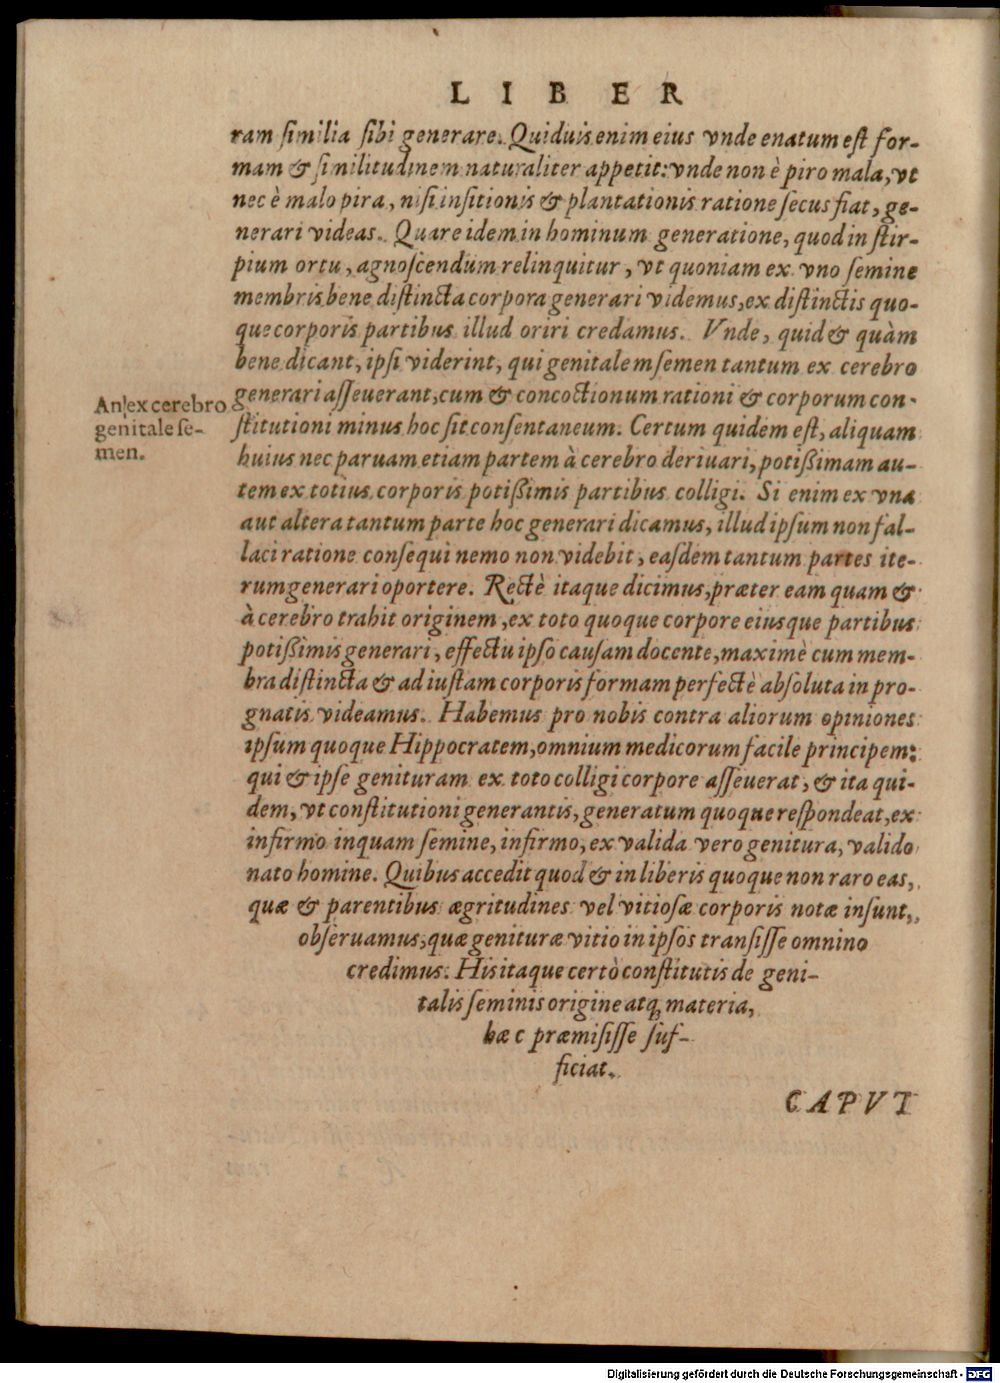 LIBER
ram ſimilia ſibi generare. Quiduis enim eius vnde enatum eſt for-
mam & ſimilitudinem naturaliter appetit: vnde non è piro mala, vt
nec è malo pira, niſi inſitionis & plantationis ratione ſecus fiat, ge-
nerari videas. Quare idem in hominum generatione, quod in ſtir-
pium ortu, agnoſcendum relinquitur, vt quoniam ex vno ſemine
membris bene diſtincta corpora generari videmus, ex diſtinctis quo-
que corporis partibus illud oriri credamus. Vnde, quid & quàm
bene dicant, ipſi viderint, qui genitalem ſemen tantum ex cerebro
generari aſſeuerant, cum & concoctionum rationi & corporum con-
ſtitutioni minus hoc ſit conſentaneum. Certum quidem eſt, aliquam
huius nec paruam etiam partem à cerebro deriuari, potißimam au-
tem ex totius corporis potißimis partibus colligi. Si enim ex vna
aut altera tantum parte hoc generari dicamus, illud ipſum non fal-
laci ratione conſequi nemo non videbit, eaſdem tantum partes ite-
rum generari oportere. Rectè itaque dicimus, præter eam quam &
à cerebro trahit originem, ex toto quoque corpore eiusque partibus
potißimis generari, effectu ipſo cauſam docente, maximè cum mem-
bra diſtincta & ad iuſtam corporis formam perfectè abſoluta in pro-
gnatis videamus. Habemus pro nobis contra aliorum opiniones
ipſum quoque Hippocratem, omnium medicorum facile principem:
qui & ipſe genituram ex toto colligi corpore aſſeuerat, & ita qui-
dem, vt conſtitutioni generantis, generatum quoque reſpondeat, ex
infirmo inquam ſemine, infirmo, ex valida vero genitura, valido
nato homine. Quibus accedit quod & in liberis quoque non raro eas,
quæ & parentibus ægritudines vel vitioſæ corporis notæ inſunt,
obſeruamus, quæ genituræ vitio in ipſos tranſiſſe omnino
credimus. His itaque certò conſtitutis de geni-
talis ſeminis origine atq; materia,
hæc præmiſiſſe ſuf-
ficiat.
CAPVT
An ex cerebro
genitale ſe-
men.
Digitalisierung gefördert durch die Deutsche Forschungsgemeinschaft - DFG